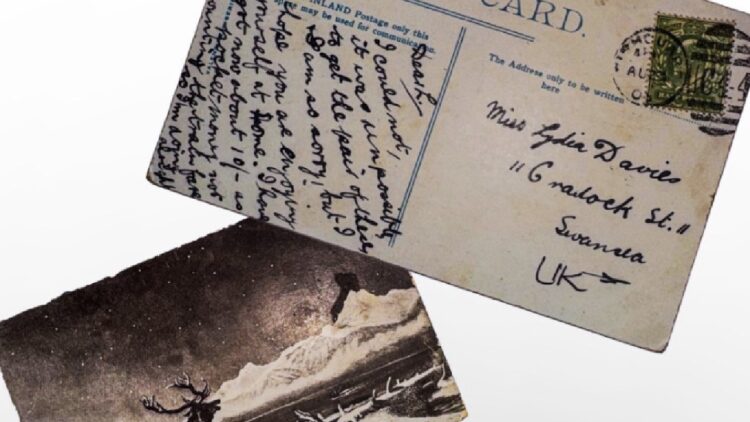 CARD.
INLAND Postage only this
may be used for communication.
The Address only to be written
here
Dear L
I could not,
it was impossible
to get the pair of these
I am so sorry! but I
hope you are enjoying
yourself at home. I have
got now about 10/- as
pocket-money not
counting the train fare
so I'm doing
Miss Lydia Davies
11 Cradock St. 11
Swansea
UK
AU